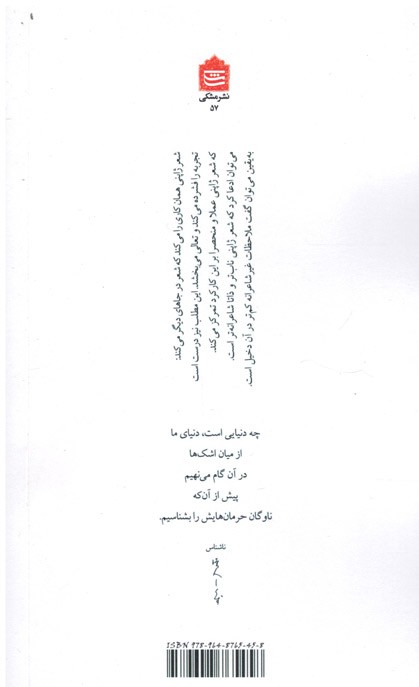 نشر مشکی
۵۷
شعر ژاپنی همان کاری را می‌کند که شعر در جاهای دیگر می‌کند:
تجربه را فشرده می‌کند و تعالی می‌بخشد. این مطلب نیز درست است
که شعر ژاپنی عملا و منحصرا بر این کارکرد تمرکز می‌کند.
می‌توان ادعا کرد که شعر ژاپنی ناب‌تر و ذاتا شاعرانه‌تر است.
به یقین می‌توان گفت ملاحظات غیرشاعرانه کم‌تر در آن دخیل است.
چه دنیایی است، دنیای ما
از میان اشک‌ها
در آن گام می‌نهیم
پیش از آن‌که
ناوگان حرمان‌هایش را بشناسیم.
ناشناس
ISBN 978-964-8765-45-8